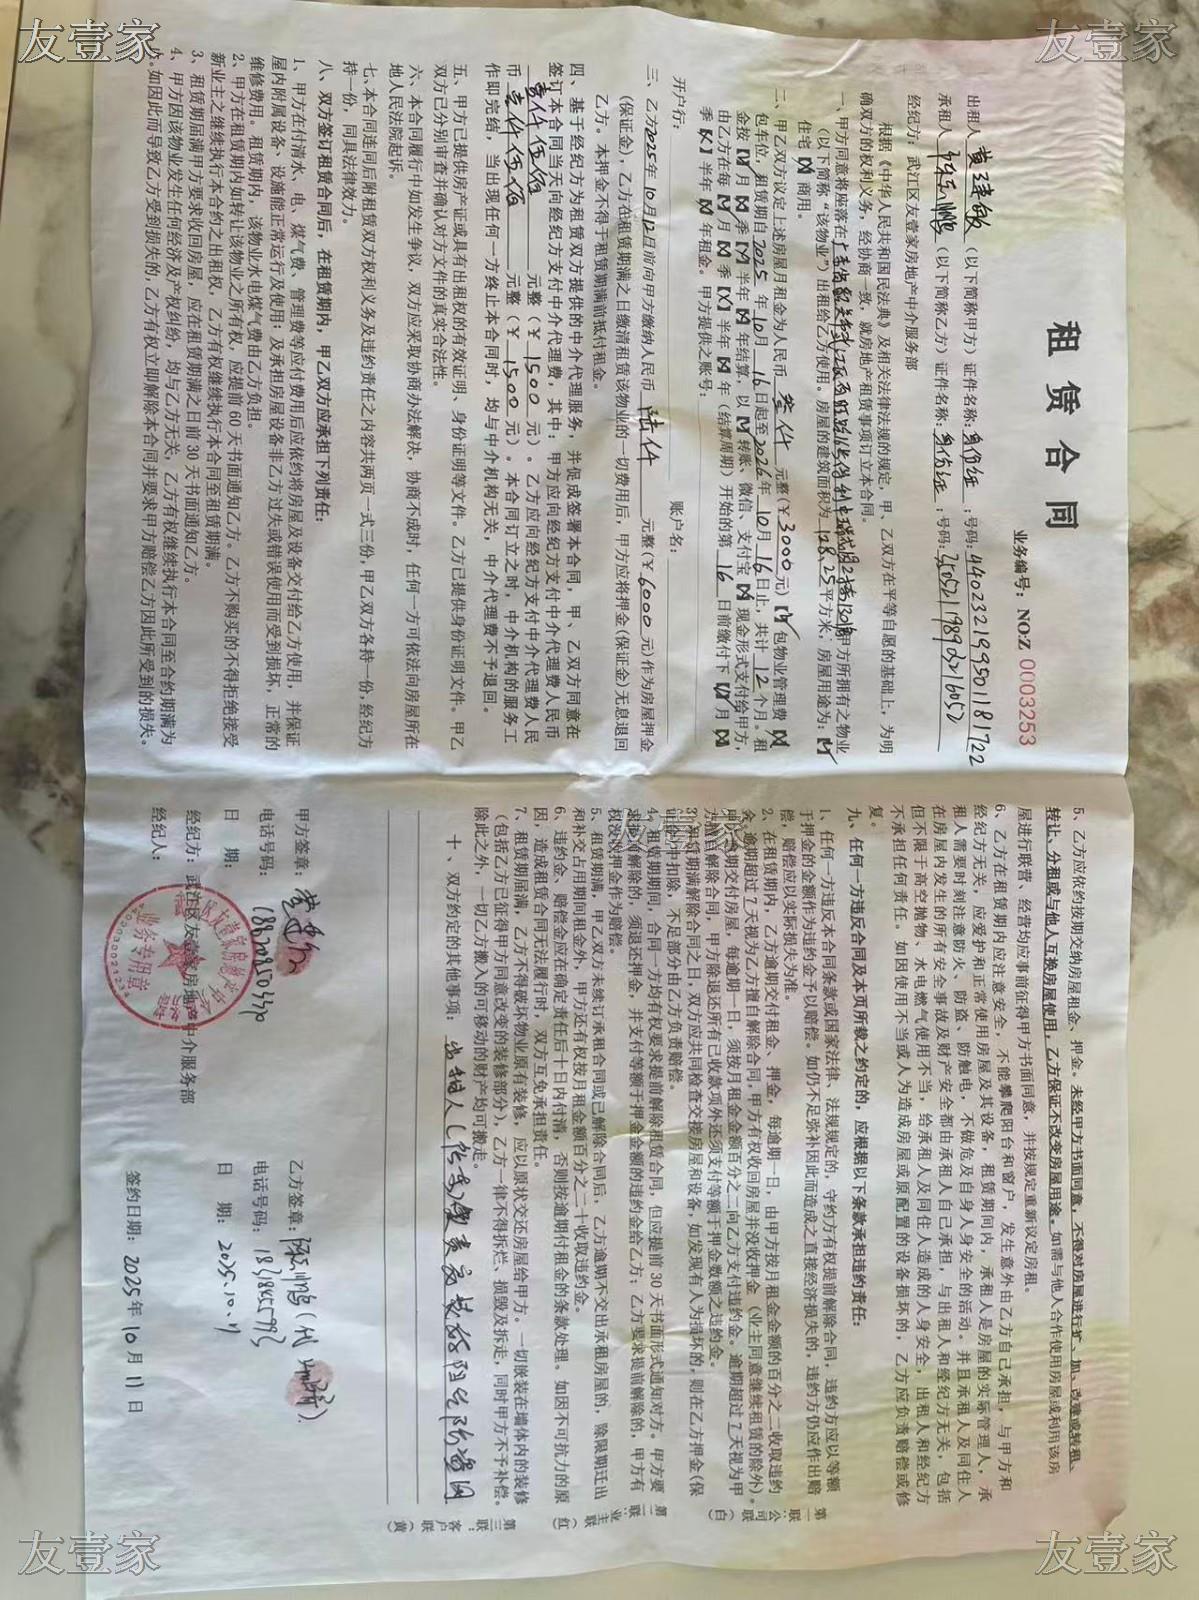 友壹家
友壹家
租赁合同
业务编号：NOZ 0003253
出租人 黄建敏 （以下简称甲方）证件名称：身份证；号码：440232199501181722
承租人（以下简称乙方）证件名称：身份证；号码：
经纪方：武江区友壹家房地产中介服务部
根据《中华人民共和国民法典》及相关法律法规的规定，甲、乙双方在平等自愿的基础上，为明
确双方的权利义务，经协商一致，就房地产租赁事项订立本合同。
一、甲方同意将座落在广东省韶关市 2栋1201房甲方所拥有之物业
（以下简称“该物业”）出租给乙方使用。房屋的建筑面积为128.25平方米，房屋用途为：【✓】
住宅【×】商用。
二、甲乙双方议定上述房屋月租金为人民币 叁仟 元整（￥3000元）【✓】包物业管理费【×】
包车位，租赁期自2025年10月16日起至2026年10月16日止，共计12个月。租
金按【✓】月【×】季【×】半年【×】年结算，以【✓】转账、微信、支付宝【×】现金形式支付给甲方，
由乙方在每【✓】月【×】季【×】半年【×】年（结算周期）开始的第16日前缴付下【✓】月【×】
季【×】半年【×】年租金。甲方提供之账号：
开户行： 账户名：
三、乙方2025年10月12日前向甲方缴纳人民币 陆仟 元整（￥6000元）作为房屋押金
（保证金），乙方在租赁期满之日缴清租赁该物业的一切费用后，甲方应将押金（保证金）无息退回
乙方。本押金不得于租赁期满前抵付租金。
四、基于经纪方为租赁双方提供的中介代理服务，并促成签署本合同，甲、乙双方同意在
签订本合同当天向经纪方支付中介代理费，其中：甲方应向经纪方支付中介代理费人民币
壹仟伍佰 元整（￥1500元）。乙方应向经纪方支付中介代理费人民
币 壹仟伍佰 元整（￥1500元）。本合同订立之时，中介机构的服务工
作即完结，当出现任何一方终止本合同时，均与中介机构无关，中介代理费不予退回。
五、甲方已提供房产证或具有出租权的有效证明、身份证明等文件。乙方已提供身份证明文件。甲乙
双方已分别审查并确认对方文件的真实合法性。
六、本合同履行中如发生争议，双方应采取协商办法解决，协商不成时，任何一方可依法向房屋所在
地人民法院起诉。
七、本合同连同后附租赁双方权利义务及违约责任之内容共两页一式三份，甲乙双方各持一份，经纪方
持一份，同具法律效力。
八、双方签订租赁合同后，在租赁期内，甲乙双方应承担下列责任：
1、甲方在付清水、电、煤气费、管理费等应付费用后应依约将房屋及设备交付给乙方使用，并保证
屋内附属设备、设施能正常运行及使用；及承担房屋设备非乙方过失或错误使用而受到损坏，正常的
维修费用。租赁期内，该物业水电煤气费由乙方负担。
2、甲方在租赁期内如转让该物业之所有权，应提前60天书面通知乙方。乙方不购买的不得拒绝接受
新业主之继续执行本合约之出租权，乙方有权继续执行本合同至租赁期满。
3、租赁期届满甲方要求收回房屋，应在租赁期满之日前30天书面通知乙方。
4、甲方因该物业发生任何经济及产权纠纷，均与乙方无关，乙方有权继续执行本合同至合约期满为
止。如因此而导致乙方受到损失的，乙方有权立即解除本合同并要求甲方赔偿乙方因此所受到的损失。
5、乙方应依约按期交纳房屋租金、押金。未经甲方书面同意，不得对房屋进行扩、加、改建或转租、
转让、分租或与他人互换房屋使用，乙方保证不改变房屋用途。如需与他人合作使用房屋或利用该房
屋进行联营、经营均应事前征得甲方书面同意，并按规定重新议定房租。
6、乙方在租赁期内应注意安全，不能攀爬阳台和窗户，发生意外由乙方自己承担，与甲方和
经纪方无关，应爱护和正常使用房屋及其设备，租赁期间内，承租人是房屋的实际管理人，承
租人需要时刻注意防火、防盗、防触电，不做危及自身人身安全的活动。并且承租人及同住人
在房屋内发生的所有安全事故及财产安全都由承租人自己承担，与出租人和经纪方无关，包括
但不限于高空抛物、水电燃气使用不当，给承租人及同住人造成的人身安全，出租人和经纪方
不承担任何责任。如因使用不当或人为造成房屋或原配置的设备损坏的，乙方应负责赔偿或修
复。
九、任何一方违反合同及本页所载之约定的，应根据以下条款承担违约责任：
1、任何一方违反本合同条款或国家法律、法规规定的，守约方有权提前解除合同，违约方应以等额
于押金的金额作为违约金予以赔偿。如仍不足弥补因此而造成之直接经济损失的，违约方仍应作出赔
偿，赔偿应以实际损失为准。
2、在租赁期内，乙方逾期交付租金、押金，每逾期一日，由甲方按月租金金额的百分之二收取违约
金，逾期超过7天视为乙方擅自解除合同，甲方有权收回房屋并没收押金（业主同意继续租赁的除外）。
甲方逾期交付房屋，每逾期一日，须按月租金金额百分之二向乙方支付违约金。逾期超过7天视为甲
方擅自解除合同，甲方除退还所有已收款项外还须支付等额于押金数额之违约金。
3、租赁期满解除合同之日，双方应共同检查交接房屋和设备，如发现有人为损坏的，则在乙方押金（保
证金）中扣除，不足部分由乙方负责赔偿。
4、租赁期期间，合同一方均有权要求提前解除租赁合同，但应提前30天书面形式通知对方。甲方要
求提前解除的，须退还押金，并支付等额于押金金额的违约金给乙方；乙方要求提前解除的，甲方有
权没收押金作为赔偿。
5、租赁期满，甲乙双方未续订承租合同或已解除合同后，乙方逾期不交出承租房屋的，除限期迁出
和补交占用期间租金外，甲方还有权按月租金额百分之二十收取违约金。
6、违约金、赔偿金应在确定责任后十日内付清，否则按逾期付租金的条款处理。如因不可抗力的原
因，造成租赁合同无法履行时，双方互免承担责任。
7、租赁期届满，乙方不得破坏物业原有装修，应以原状交还房屋给甲方。一切嵌装在墙体内的装修
（包括乙方已征得甲方同意改变的装修部分），乙方一律不得拆烂、损毁及拆走，同时甲方不予补偿。
除此之外，一切乙方搬入的可移动的财产均可搬走。
十、双方约定的其他事项：出租人
第一联：公司联（白）
第二联：业主联（红）
第三联：客户联（黄）
甲方签章：黄建敏
电话号码：
日 期：
经纪方：武江区友壹家房地产中介服务部
经纪人：
业务专用章
乙方签章：
电话号码：
日 期：2025.10.11
签约日期：2025年10月11日
友壹家
友壹家
友壹家